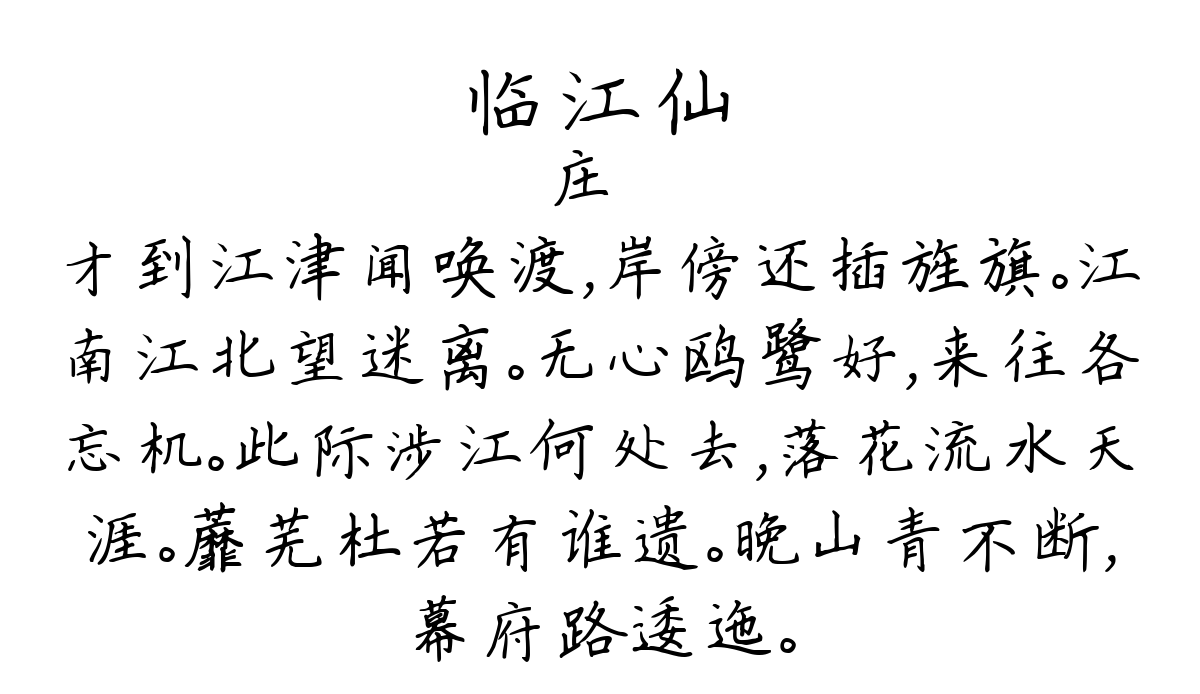 临江仙
庄
才到江津闻唤渡,岸傍还插旌旗。江
南江北望迷离。无心鸥鹭好,来往各
忘机。此际涉江何处去,落花流水天
涯。蘼芜杜若有谁遗。晚山青不断,
幕府路逶迤。